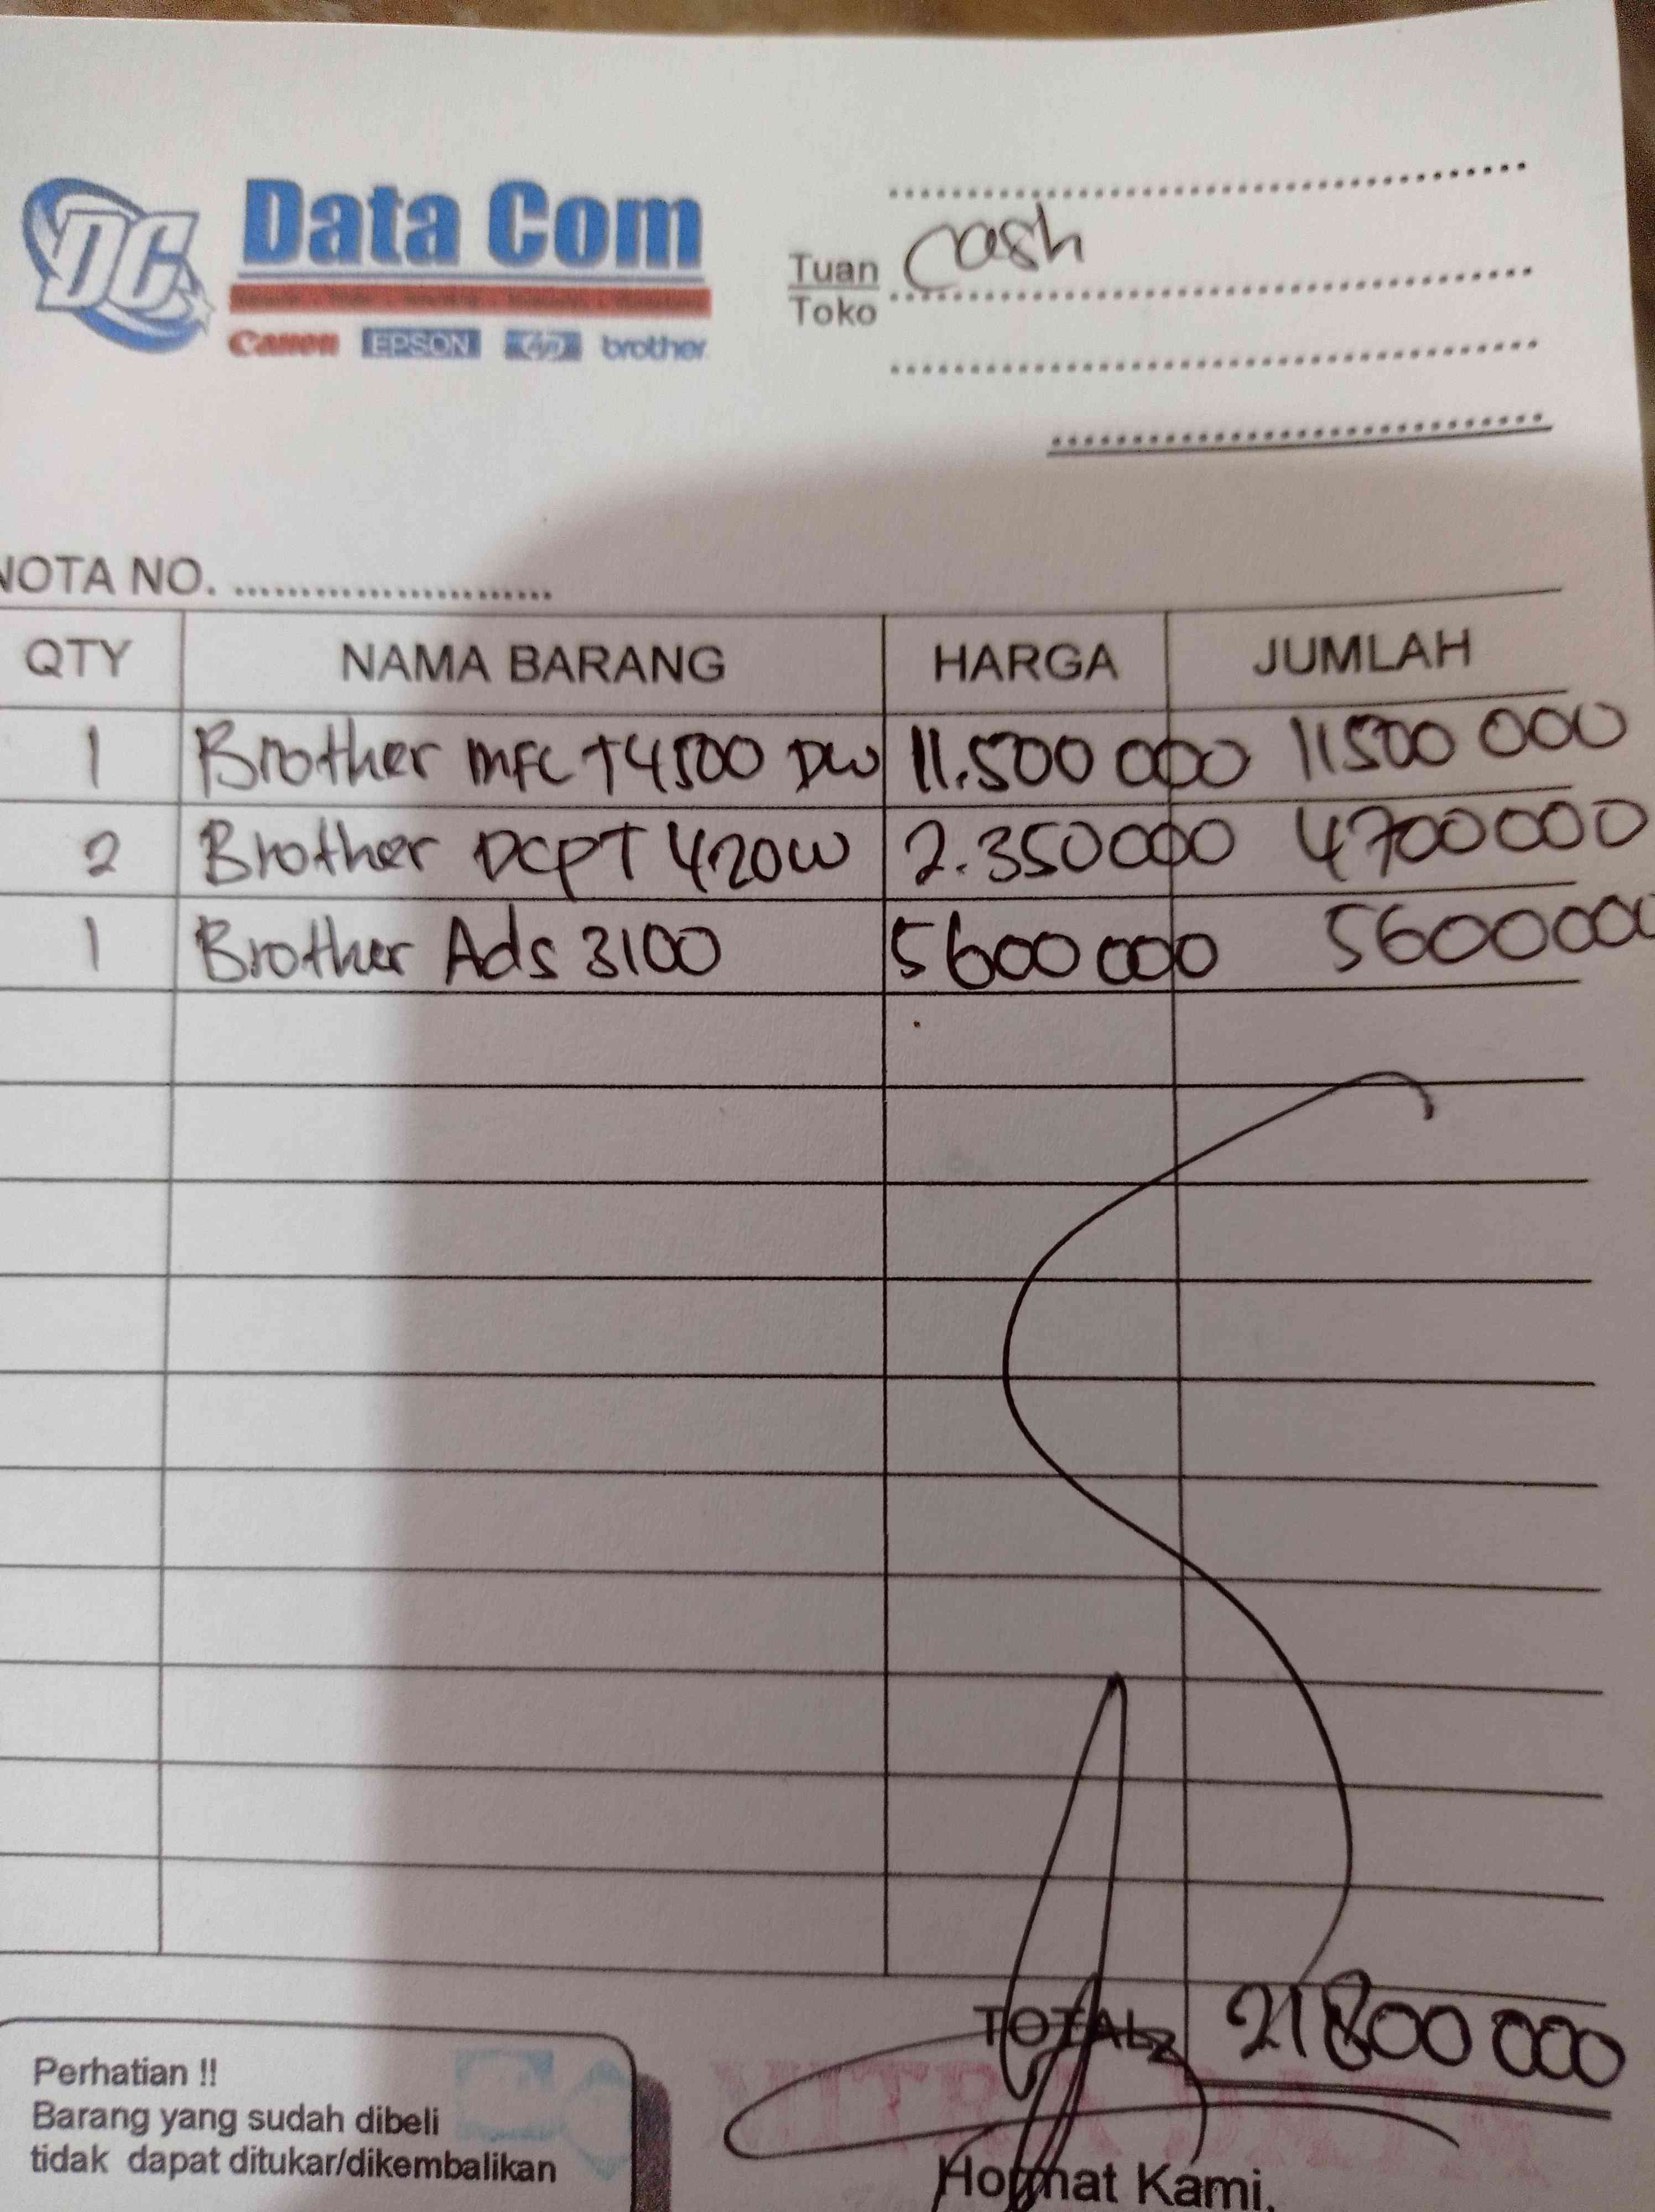 DC Data Com
Canon EPSON hp brother
Tuan Toko Cash
NOTA NO. ........................
QTY NAMA BARANG HARGA JUMLAH
1 Brother MFC T4500 DW 11.500 000 11500 000
2 Brother DCPT 420W 2.350000 4700000
1 Brother Ads 3100 5600 000 5600000
TOTAL 21800 000
Perhatian !!
Barang yang sudah dibeli
tidak dapat ditukar/dikembalikan
MITRA DATA
Hormat Kami,